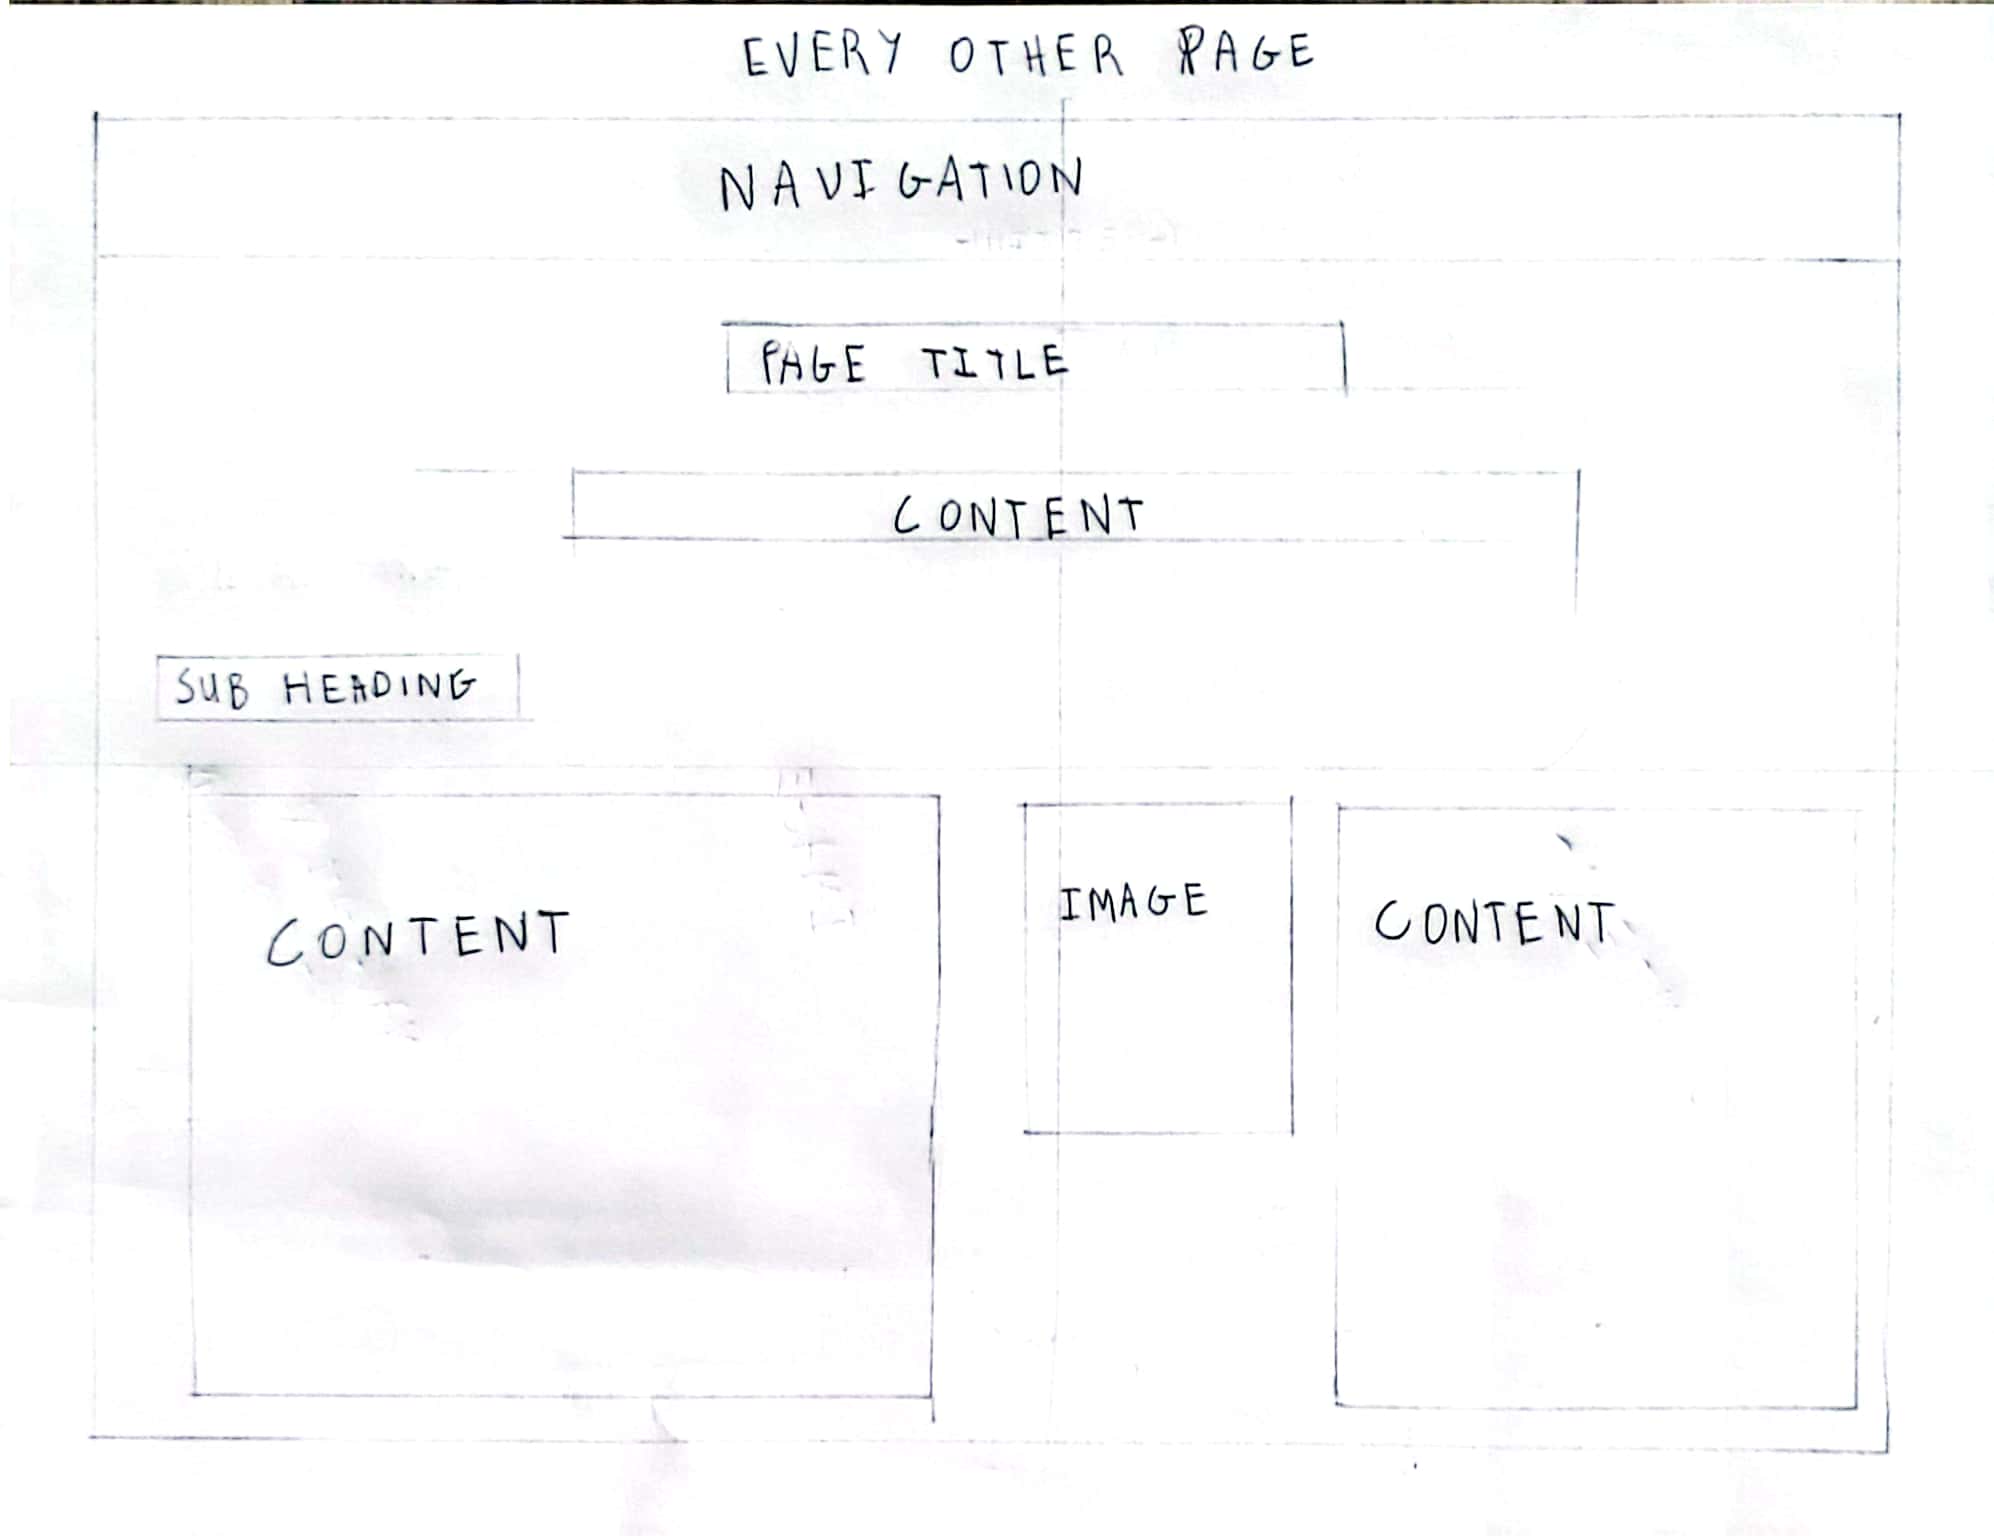 EVERY OTHER PAGE
NAVIGATION
PAGE TITLE
CONTENT
SUB HEADING
CONTENT
IMAGE
CONTENT